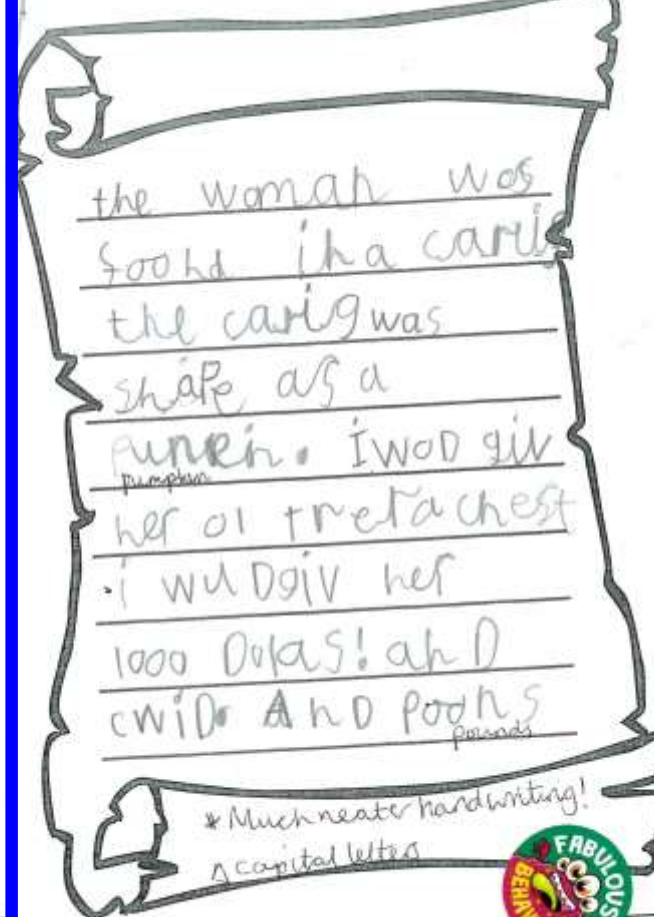 the woman was
foond in a carig
the carig was
shape as a
punkin. I woD giv
pumpkin
her ol treta chest
i wuD giv her
1000 Dolas! anD
cwiD. AnD poons
pounds
* Much neater handwriting!
capital letter
FABULOUS
BEHA